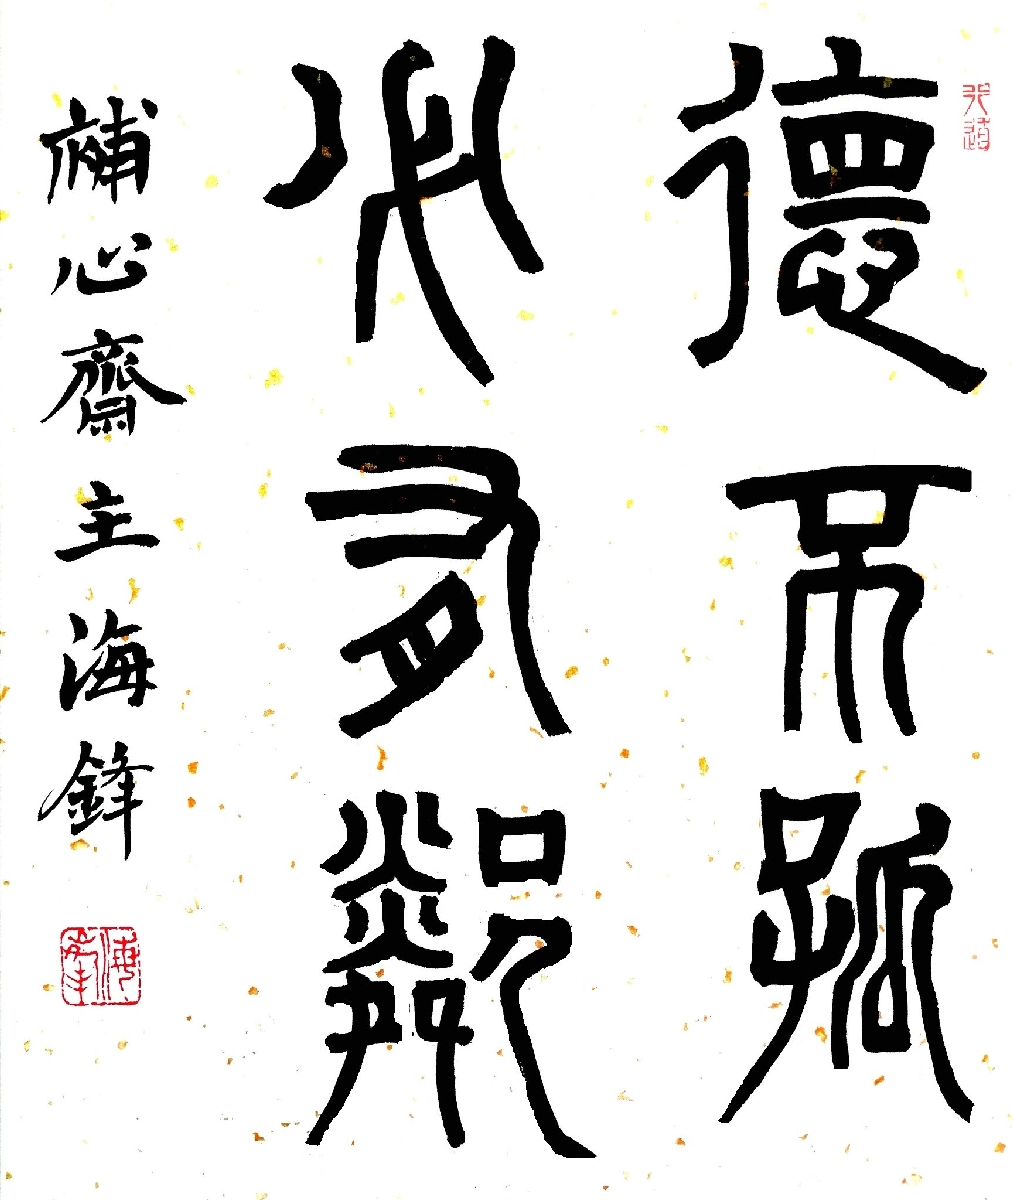 德不孤
必有鄰
補心齋主海鋒